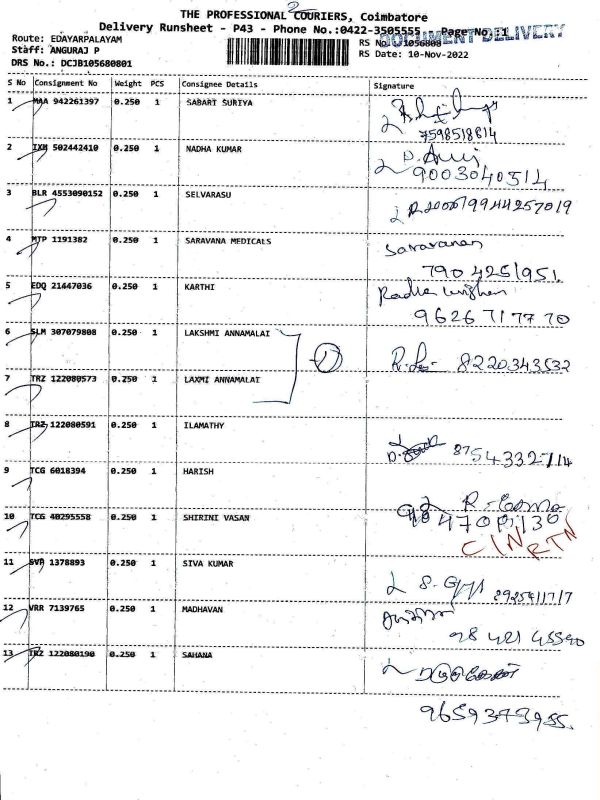 2
THE PROFESSIONAL COURIERS, Coimbatore
Delivery Runsheet - P43 - Phone No.:0422-3505555 Page No.:1
DOCUMENT DELIVERY
Route: EDAYARPALAYAM RS No.:
Staff: ANGURAJ P RS Date: 10-Nov-2022
DRS No.: DCJB105680801
S No Consignment No Weight PCS Consignee Details Signature
1 MAA 942261397 0.250 1 SABARI SURIYA
7598518814
2 IXM 502442410 0.250 1 NADHA KUMAR
9003040514
3 BLR 4553090152 0.250 1 SELVARASU 9944257019
4 MTP 1191382 0.250 1 SARAVANA MEDICALS Saravanan
7904251951.
5 EDQ 21447036 0.250 1 KARTHI Radha
9626717770
6 SLM 307079808 0.250 1 LAKSHMI ANNAMALAI
1 8220343532
7 TRZ 122080573 0.250 1 LAXMI ANNAMALAI
8 TRZ 122080591 0.250 1 ILAMATHY
8754332714
9 TCG 6018394 0.250 1 HARISH
10 TCG 40295558 0.250 1 SHIRINI VASAN
C/N RTN
11 SVR 1378893 0.250 1 SIVA KUMAR
12 VRR 7139765 0.250 1 MADHAVAN
13 TRZ 122080190 0.250 1 SAHANA
9659373955.